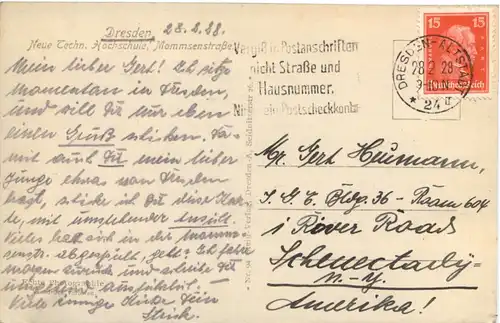 Dresden 28.2.28
Neue Techn. Hochschule, Mommsenstraße
Mein lieber Gert! Ich sitze
momentan in Dresden,
und will Dir nur eben
einen Gruß schicken. Da-
mit auch Du mein lieber
Junge etwas von Dresden
hast, schicke ich Dir diese Kar-
te, mit umstehender
Vieles hat sich in der Momm-
senstr. abgespielt, gelt? Ich fahre
morgen zurück und schreibe Dir
umgehend ausführlich.
Viele innige Küsse Dein
Echte Photographie
Vergiß in Postanschriften
nicht Straße und
Hausnummer,
Postscheckkonto
DRESDEN-ALTSTADT
28.2.28
* 24 d
15 15
Deutsches Reich
Mr. Gert Heumann,
I. G. E. Bldg. 36 - Room 604
1 River Road
Schenectady
N.-Y.
Amerika!